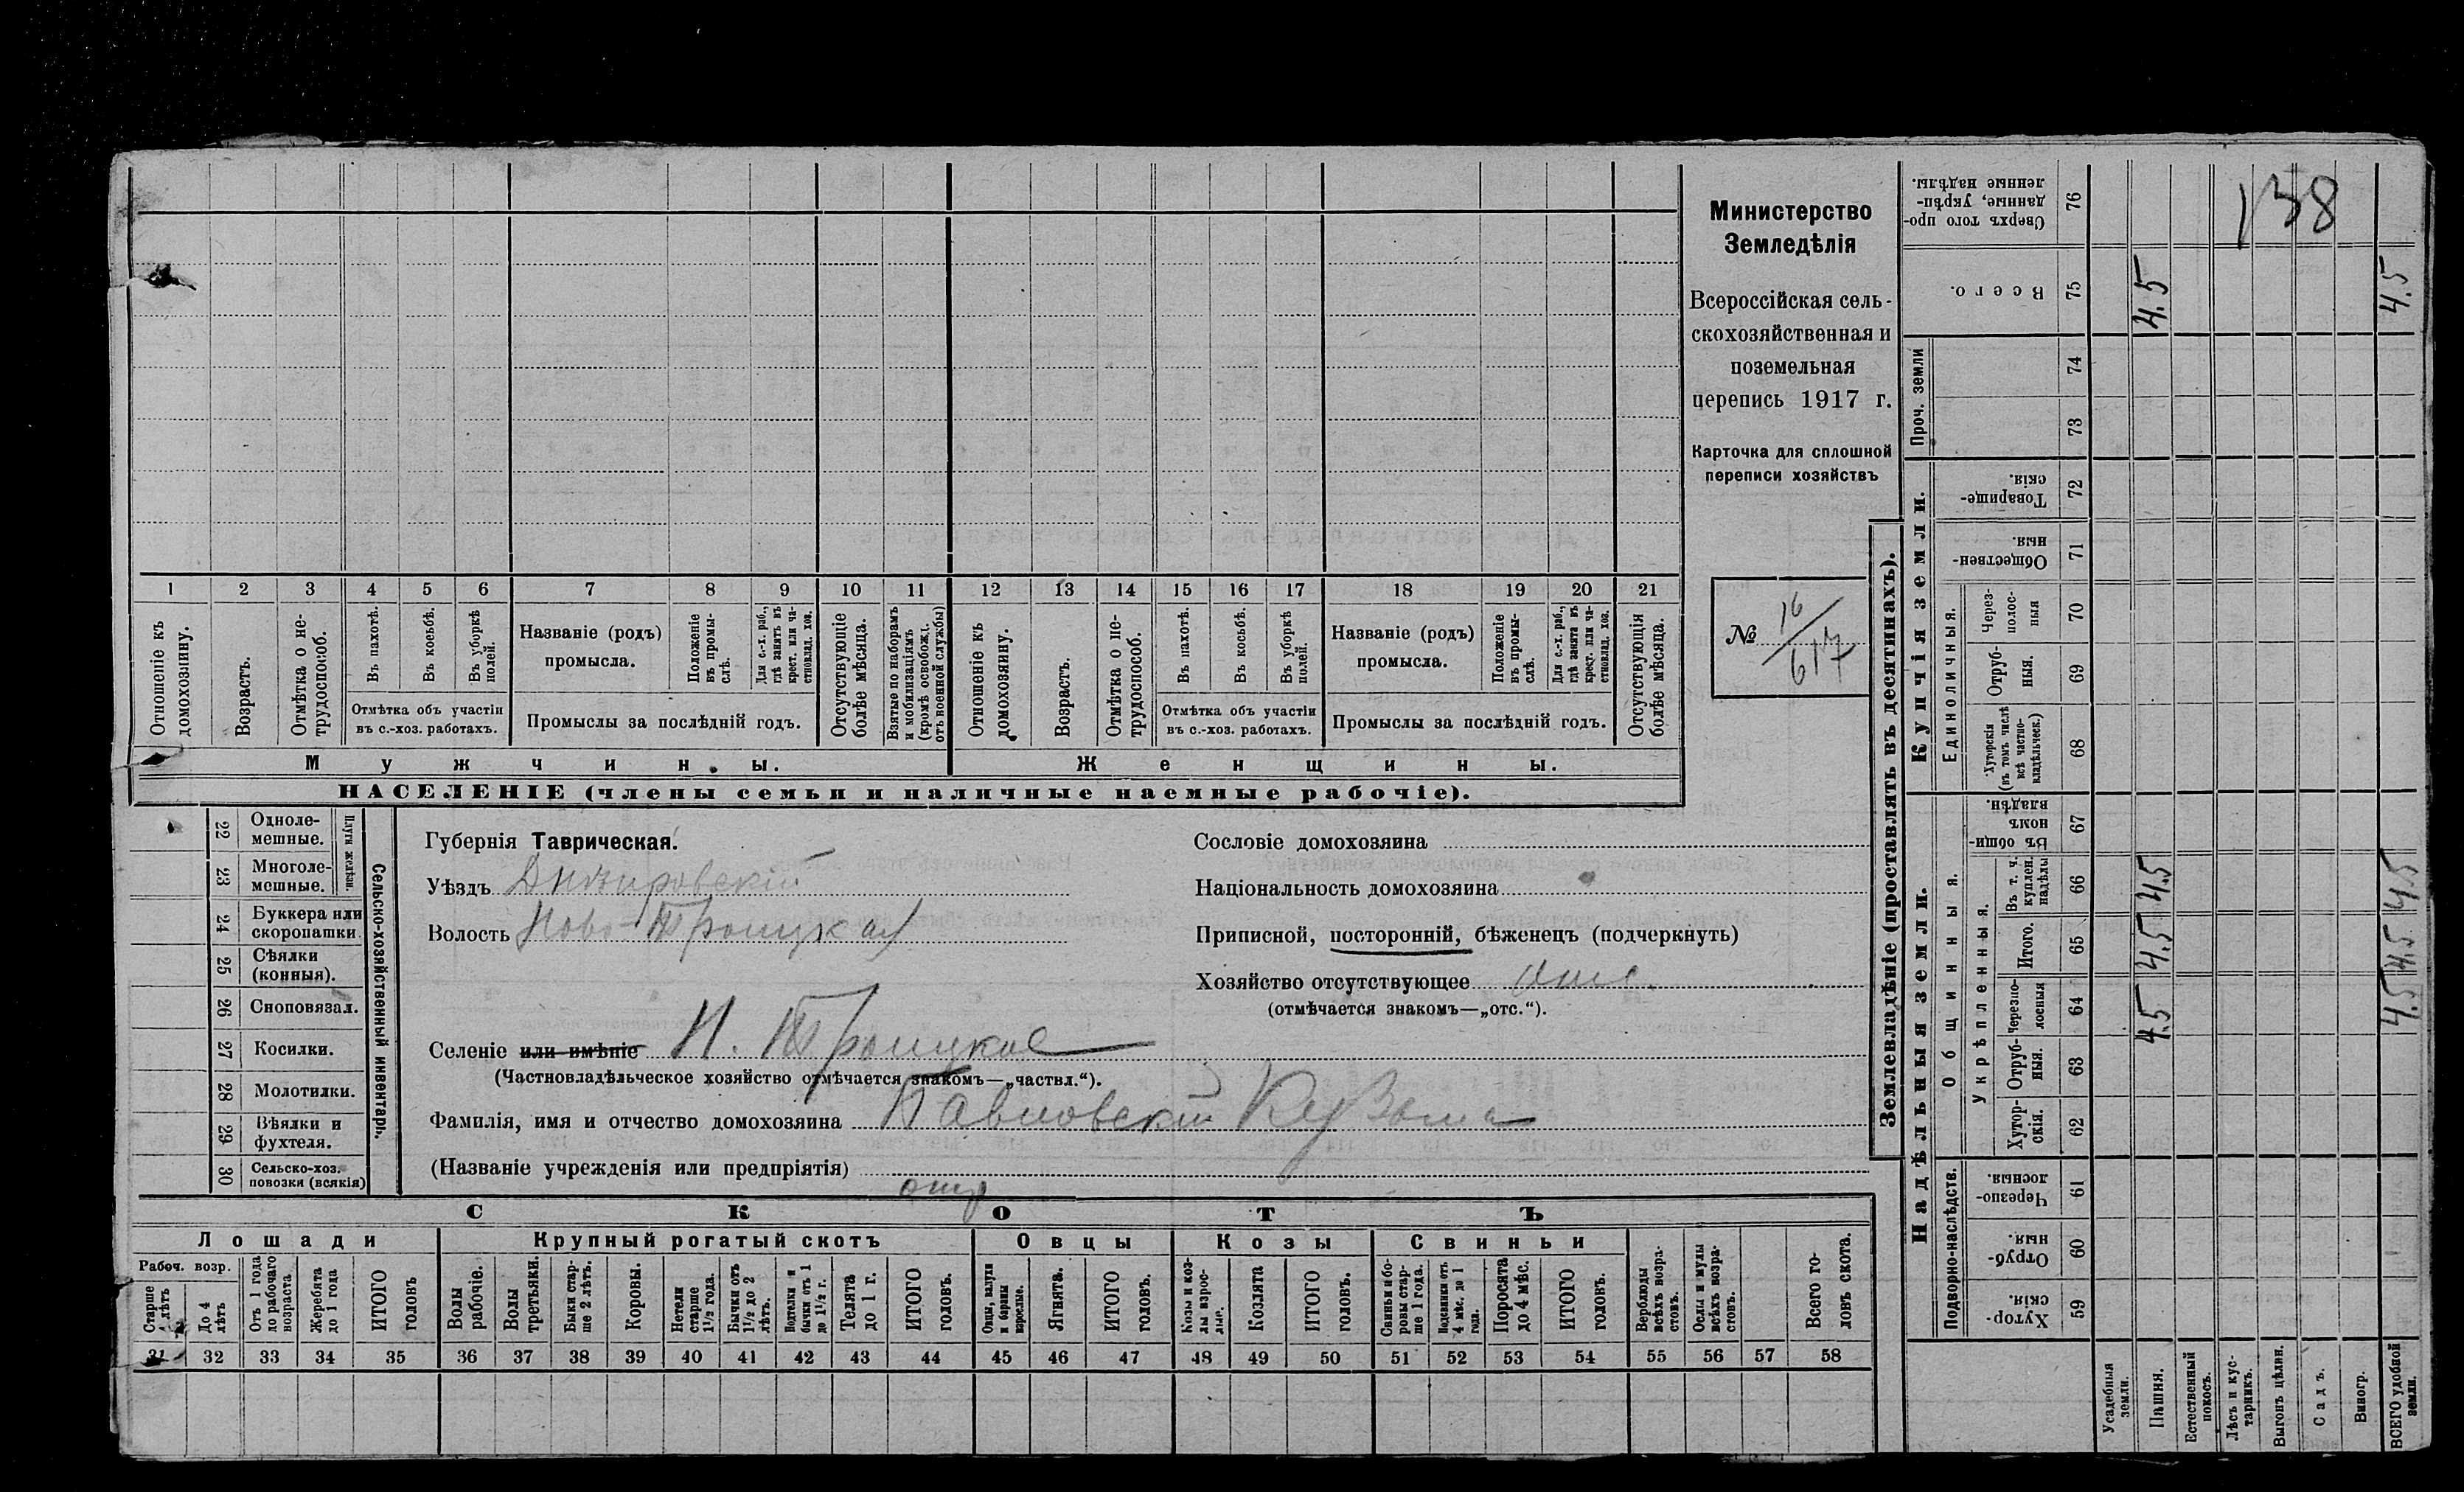 Министерство
Земледѣлія
Всероссійская сель-
скохозяйственная и
поземельная
перепись 1917 г.
Карточка для сплошной
переписи хозяйствъ
№ 16/617
1 2 3 4 5 6 7 8 9 10 11 12 13 14 15 16 17 18 19 20 21
Отношеніе къ домохозяину.
Возрастъ.
Отмѣтка о не-трудоспособ.
Въ пахотѣ.
Въ косьбѣ.
Въ уборкѣ полей.
Отмѣтка объ участіи
въ с.-хоз. работахъ.
Названіе (родъ)
промысла.
Положеніе въ промы-слѣ.
Для с.-х. раб., гдѣ занятъ въ крест. или ча-стновлад. хоз.
Промыслы за послѣдній годъ.
Отсутствующіе болѣе мѣсяца.
Взятые по наборамъ и мобилизаціямъ (кромѣ освобожд. отъ военной службы)
Отношеніе къ домохозяину.
Возрастъ.
Отмѣтка о не-трудоспособ.
Въ пахотѣ.
Въ косьбѣ.
Въ уборкѣ полей.
Отмѣтка объ участіи
въ с.-хоз. работахъ.
Названіе (родъ)
промысла.
Положеніе въ промы-слѣ.
Для с.-х. раб., гдѣ занята въ крест. или ча-стновлад. хоз.
Промыслы за послѣдній годъ.
Отсутствующія болѣе мѣсяца.
Мужчины.
Женщины.
НАСЕЛЕНІЕ (члены семьи и наличные наемные рабочіе).
22 Одноле-мешные.
23 Многоле-мешные.
Плуги желѣзн.
24 Буккера или скоропашки
25 Сѣялки (конныя).
26 Сноповязал.
27 Косилки.
28 Молотилки.
29 Вѣялки и фухтеля.
30 Сельско-хоз. повозки (всякія)
Сельско-хозяйственный инвентарь.
Губернія Таврическая.
Уѣздъ Днѣпровскій
Волость Ново-Троицкая
Селеніе или имѣніе Н. Троицкое
(Частновладѣльческое хозяйство отмѣчается знакомъ—„частвл.“).
Фамилія, имя и отчество домохозяина Павловскій Кузьма
(Названіе учрежденія или предпріятія)
Сословіе домохозяина
Національность домохозяина
Приписной, посторонній, бѣженецъ (подчеркнуть)
Хозяйство отсутствующее отс.
(отмѣчается знакомъ—„отс.“).
СКОТЪ
Лошади
Крупный рогатый скотъ
Овцы
Козы
Свиньи
Рабоч. возр.
Старше 4 лѣтъ
До 4 лѣтъ
Отъ 1 года до рабочаго возраста
Жеребята до 1 года
ИТОГО головъ
Волы рабочіе.
Волы третьяки.
Быки стар-ше 2 лѣтъ.
Коровы.
Нетели старше 1½ года.
Бычки отъ 1½ до 2 лѣтъ.
Подтелки и бычки отъ 1 до 1½ г.
Телята до 1 г.
ИТОГО головъ.
Овцы, валухи и бараны взрослые.
Ягнята.
ИТОГО головъ.
Козы и коз-лы взрос-лые.
Козлята
ИТОГО головъ.
Свиньи и бо-ровы стар-ше 1 года.
Подсвинки отъ 4 мѣс. до 1 года.
Поросята до 4 мѣс.
ИТОГО головъ.
Верблюды всѣхъ возра-стовъ.
Ослы и мулы всѣхъ возра-стовъ.
Всего го-ловъ скота.
31 32 33 34 35 36 37 38 39 40 41 42 43 44 45 46 47 48 49 50 51 52 53 54 55 56 57 58
Землевладѣніе (проставлять въ десятинахъ).
Надѣльныя земли.
Купчія земли.
Проч. земли
Подворно-наслѣдств.
Общинныя.
Укрѣпленныя.
Единоличныя.
Хутор-скія. 59
Отруб-ныя. 60
Черезпо-лосныя. 61
Хутор-скія. 62
Отруб-ныя. 63
Черезпо-лосныя 64
Итого. 65
Въ т. ч. куплен. надѣлы 66
Въ общин-номъ владѣн. 67
Хуторскія (въ томъ числѣ всѣ частно-владѣльческ.) 68
Отруб-ныя. 69
Через-полос-ныя 70
Обществен-ныя. 71
Товарище-скія. 72
73
74
Всего. 75
Сверхъ того про-данные, укрѣп-ленные надѣлы. 76
Усадебныя земли.
Пашня. 4.5 4.5 4.5 4.5
Естественный покосъ.
Лѣсъ и кус-тарникъ.
Выгонъ цѣлин.
Садъ.
Виногр.
ВСЕГО удобной земли. 4.5 4.5 4.5 4.5
138